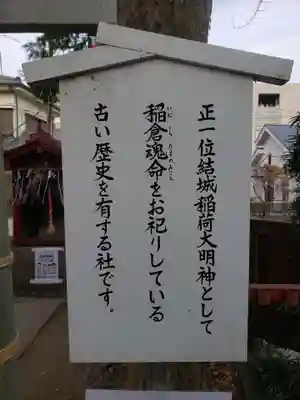 正一位結城稲荷大明神として
稲倉魂命をお祀りしている
古い歴史を有する社です。